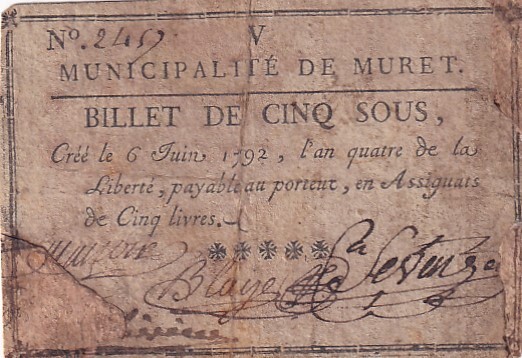 No. 2457 V
MUNICIPALITÉ DE MURET.
BILLET DE CINQ SOUS,
Créé le 6 Juin 1792, l'an quatre de la
Liberté, payable au porteur, en Assignats
de Cinq livres.
*****
Blaye